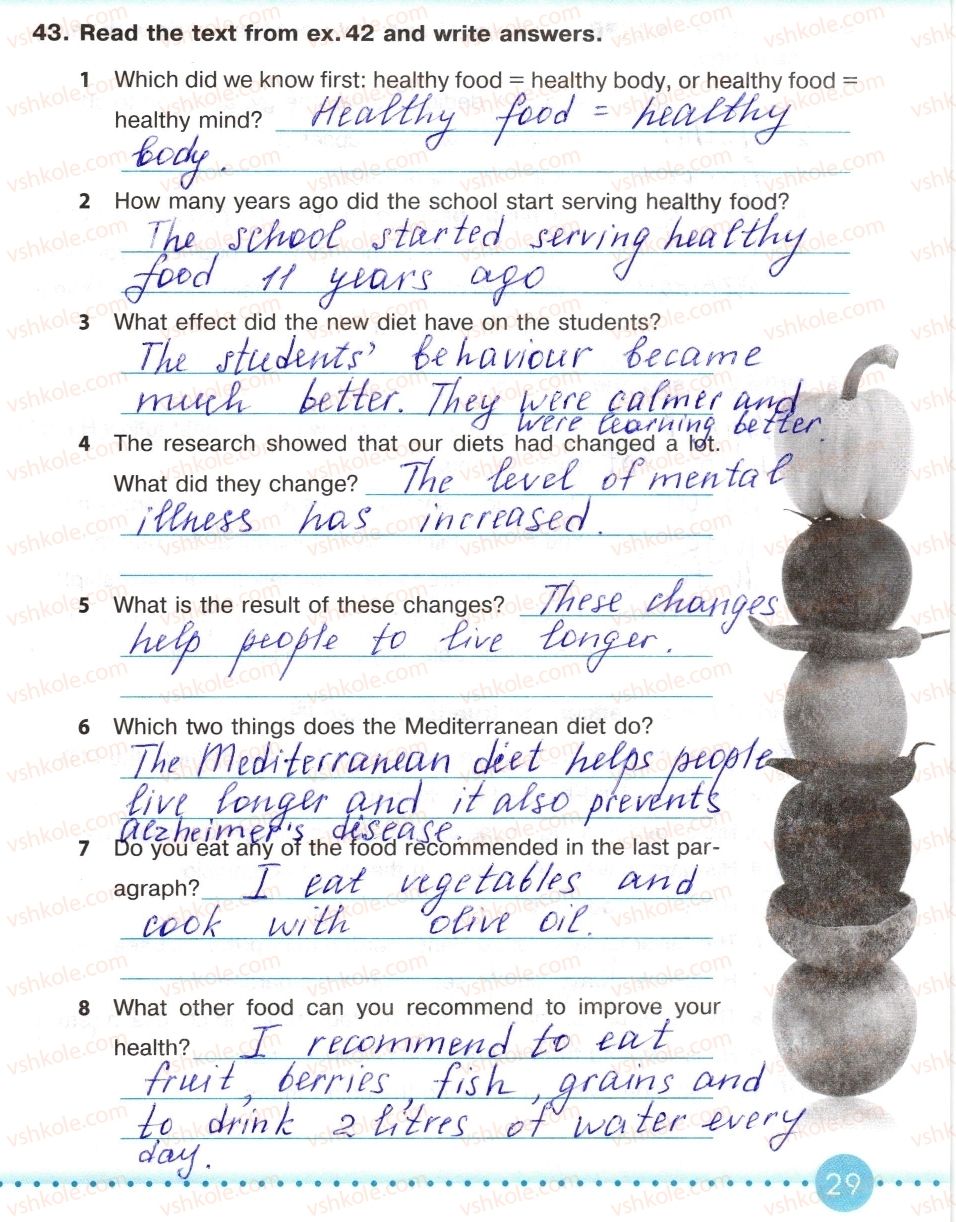 43. Read the text from ex. 42 and write answers.
1 Which did we know first: healthy food = healthy body, or healthy food =
healthy mind? Healthy food = healthy
body.
2 How many years ago did the school start serving healthy food?
The school started serving healthy
food 11 years ago
3 What effect did the new diet have on the students?
The students' behaviour became
much better. They were calmer and
were learning better.
4 The research showed that our diets had changed a lot.
What did they change? The level of mental
illness has increased.
5 What is the result of these changes? These changes
help people to live longer.
6 Which two things does the Mediterranean diet do?
The Mediterranean diet helps people
live longer and it also prevents
alzheimer's disease.
7 Do you eat any of the food recommended in the last par-
agraph? I eat vegetables and
cook with olive oil.
8 What other food can you recommend to improve your
health? I recommend to eat
fruit, berries, fish, grains and
to drink 2 litres of water every
day.
29
vshkole.com